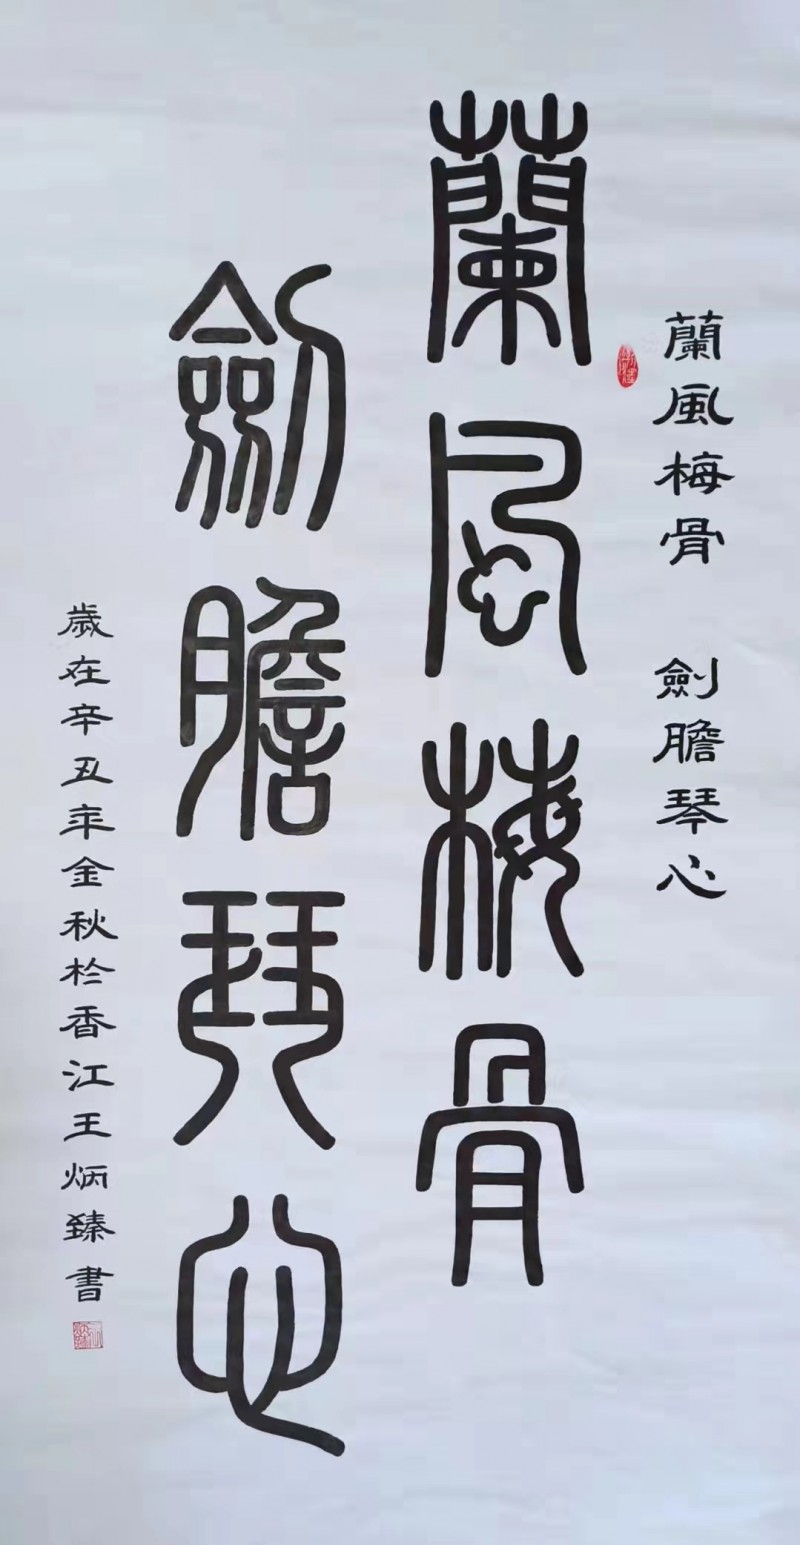 蘭風梅骨 劍膽琴心
蘭風梅骨
劍膽琴心
歲在辛丑年金秋於香江王炳臻書